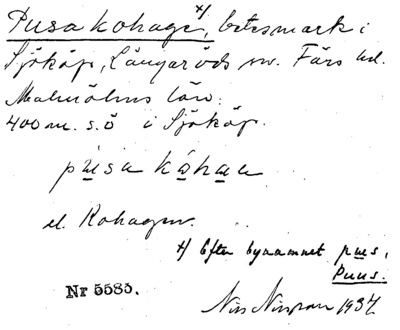 Pusa kohage x/, betesmark i
Sjököp, Långaröds sn. Färs hd.
Malmöhus län.
400 m. s.ö i Sjököp.
pusa kåhaa
el. Kohagen.
x/ Efter bynamnet pus,
Puus.
Nr 5583.
1937